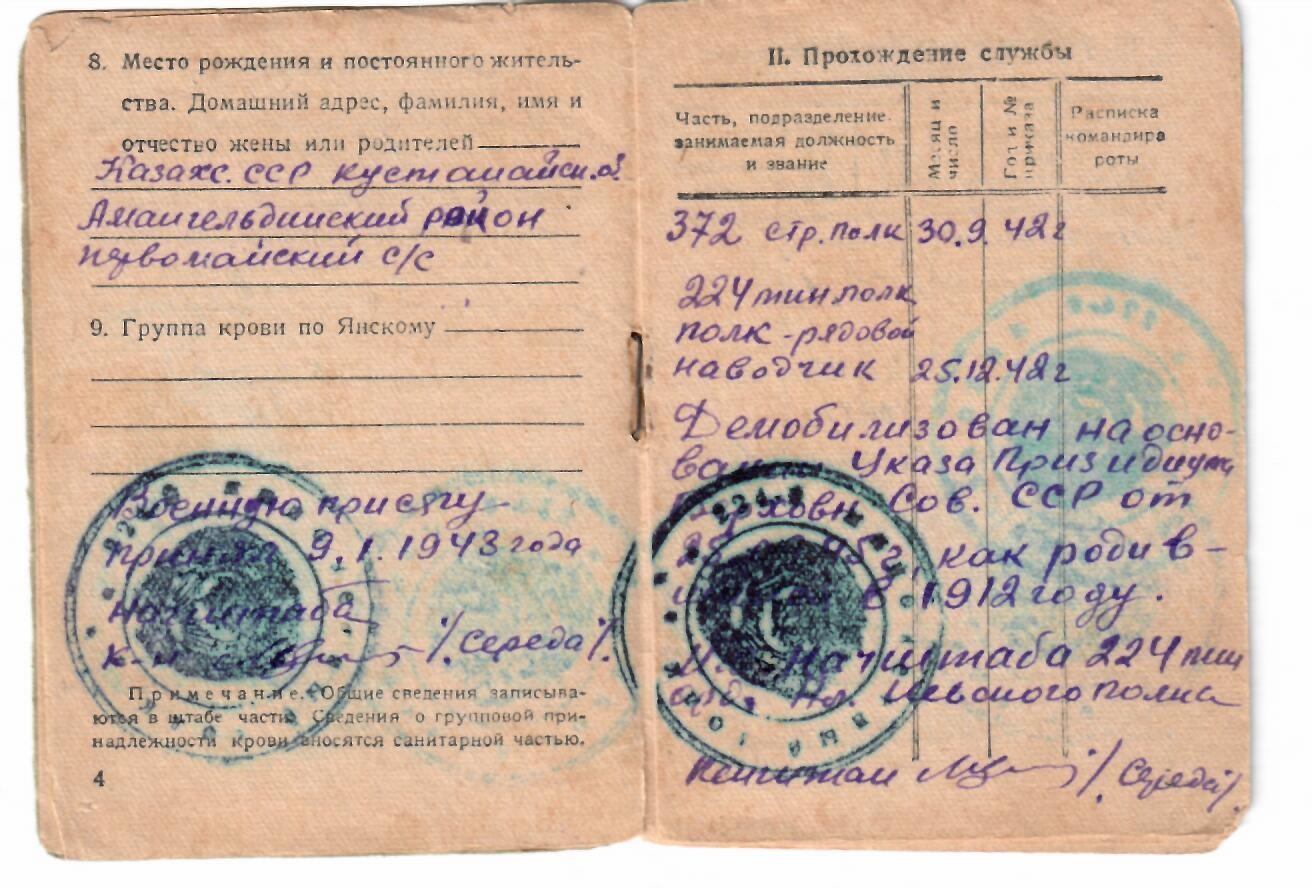 8. Место рождения и постоянного житель-
ства. Домашний адрес, фамилия, имя и
отчество жены или родителей
Казахс. ССР кустанайск.
Амангельдинский район
первомайский с/с
9. Группа крови по Янскому
Военную присягу
принял 9.1.1943 года
Начштаба
к-н /Середа/.
Примечание. Общие сведения записыва-
ются в штабе части. Сведения о групповой при-
надлежности крови вносятся санитарной частью.
4
II. Прохождение службы
Часть, подразделение
занимаемая должность
и звание
Месяц и
число
Год и №
приказа
Расписка
командира
роты
372 стр. полк 30.9 42г
224 минполк
полк - рядовой
наводчик 25.12.42г
Демобилизован на осно-
Указа Призидиума
Сов. ССР от
как родив-
в 1912 году.
Начштаба 224 мин
полка
Капитан /Середа/.